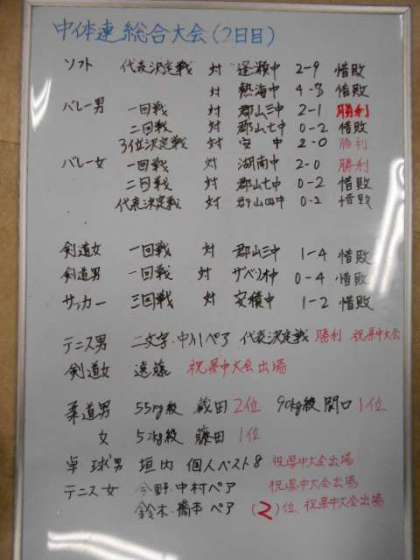 中体連総合大会(2日目)
ソフト 代表決定戦 対 逢瀬中 2-9 惜敗
対 熱海中 4-8 惜敗
バレー男 一回戦 対 郡山三中 2-1 勝利
二回戦 対 郡山七中 0-2 惜敗
3位決定戦 対 安 中 2-0 勝利
バレー女 一回戦 対 湖南中 2-0 勝利
二回戦 対 郡山七中 0-2 惜敗
代表決定戦 対 郡山四中 0-2 惜敗
剣道女 一回戦 対 郡山三中 1-4 惜敗
剣道男 一回戦 対 ザベリオ中 0-4 惜敗
サッカー 三回戦 対 安積中 1-2 惜敗
テニス男 二文字・中川ペア 代表決定戦 勝利 祝県中大会
剣道女 遠藤 祝県中大会出場
柔道男 55kg級 蔵田 2位 90kg級 関口 1位
女 52kg級 藤田 1位
卓球男 垣内 個人ベスト8 祝県中大会出場
テニス女 今野・中村ペア 祝県中大会出場
鈴木・橋本ペア (2)位、祝県中大会出場